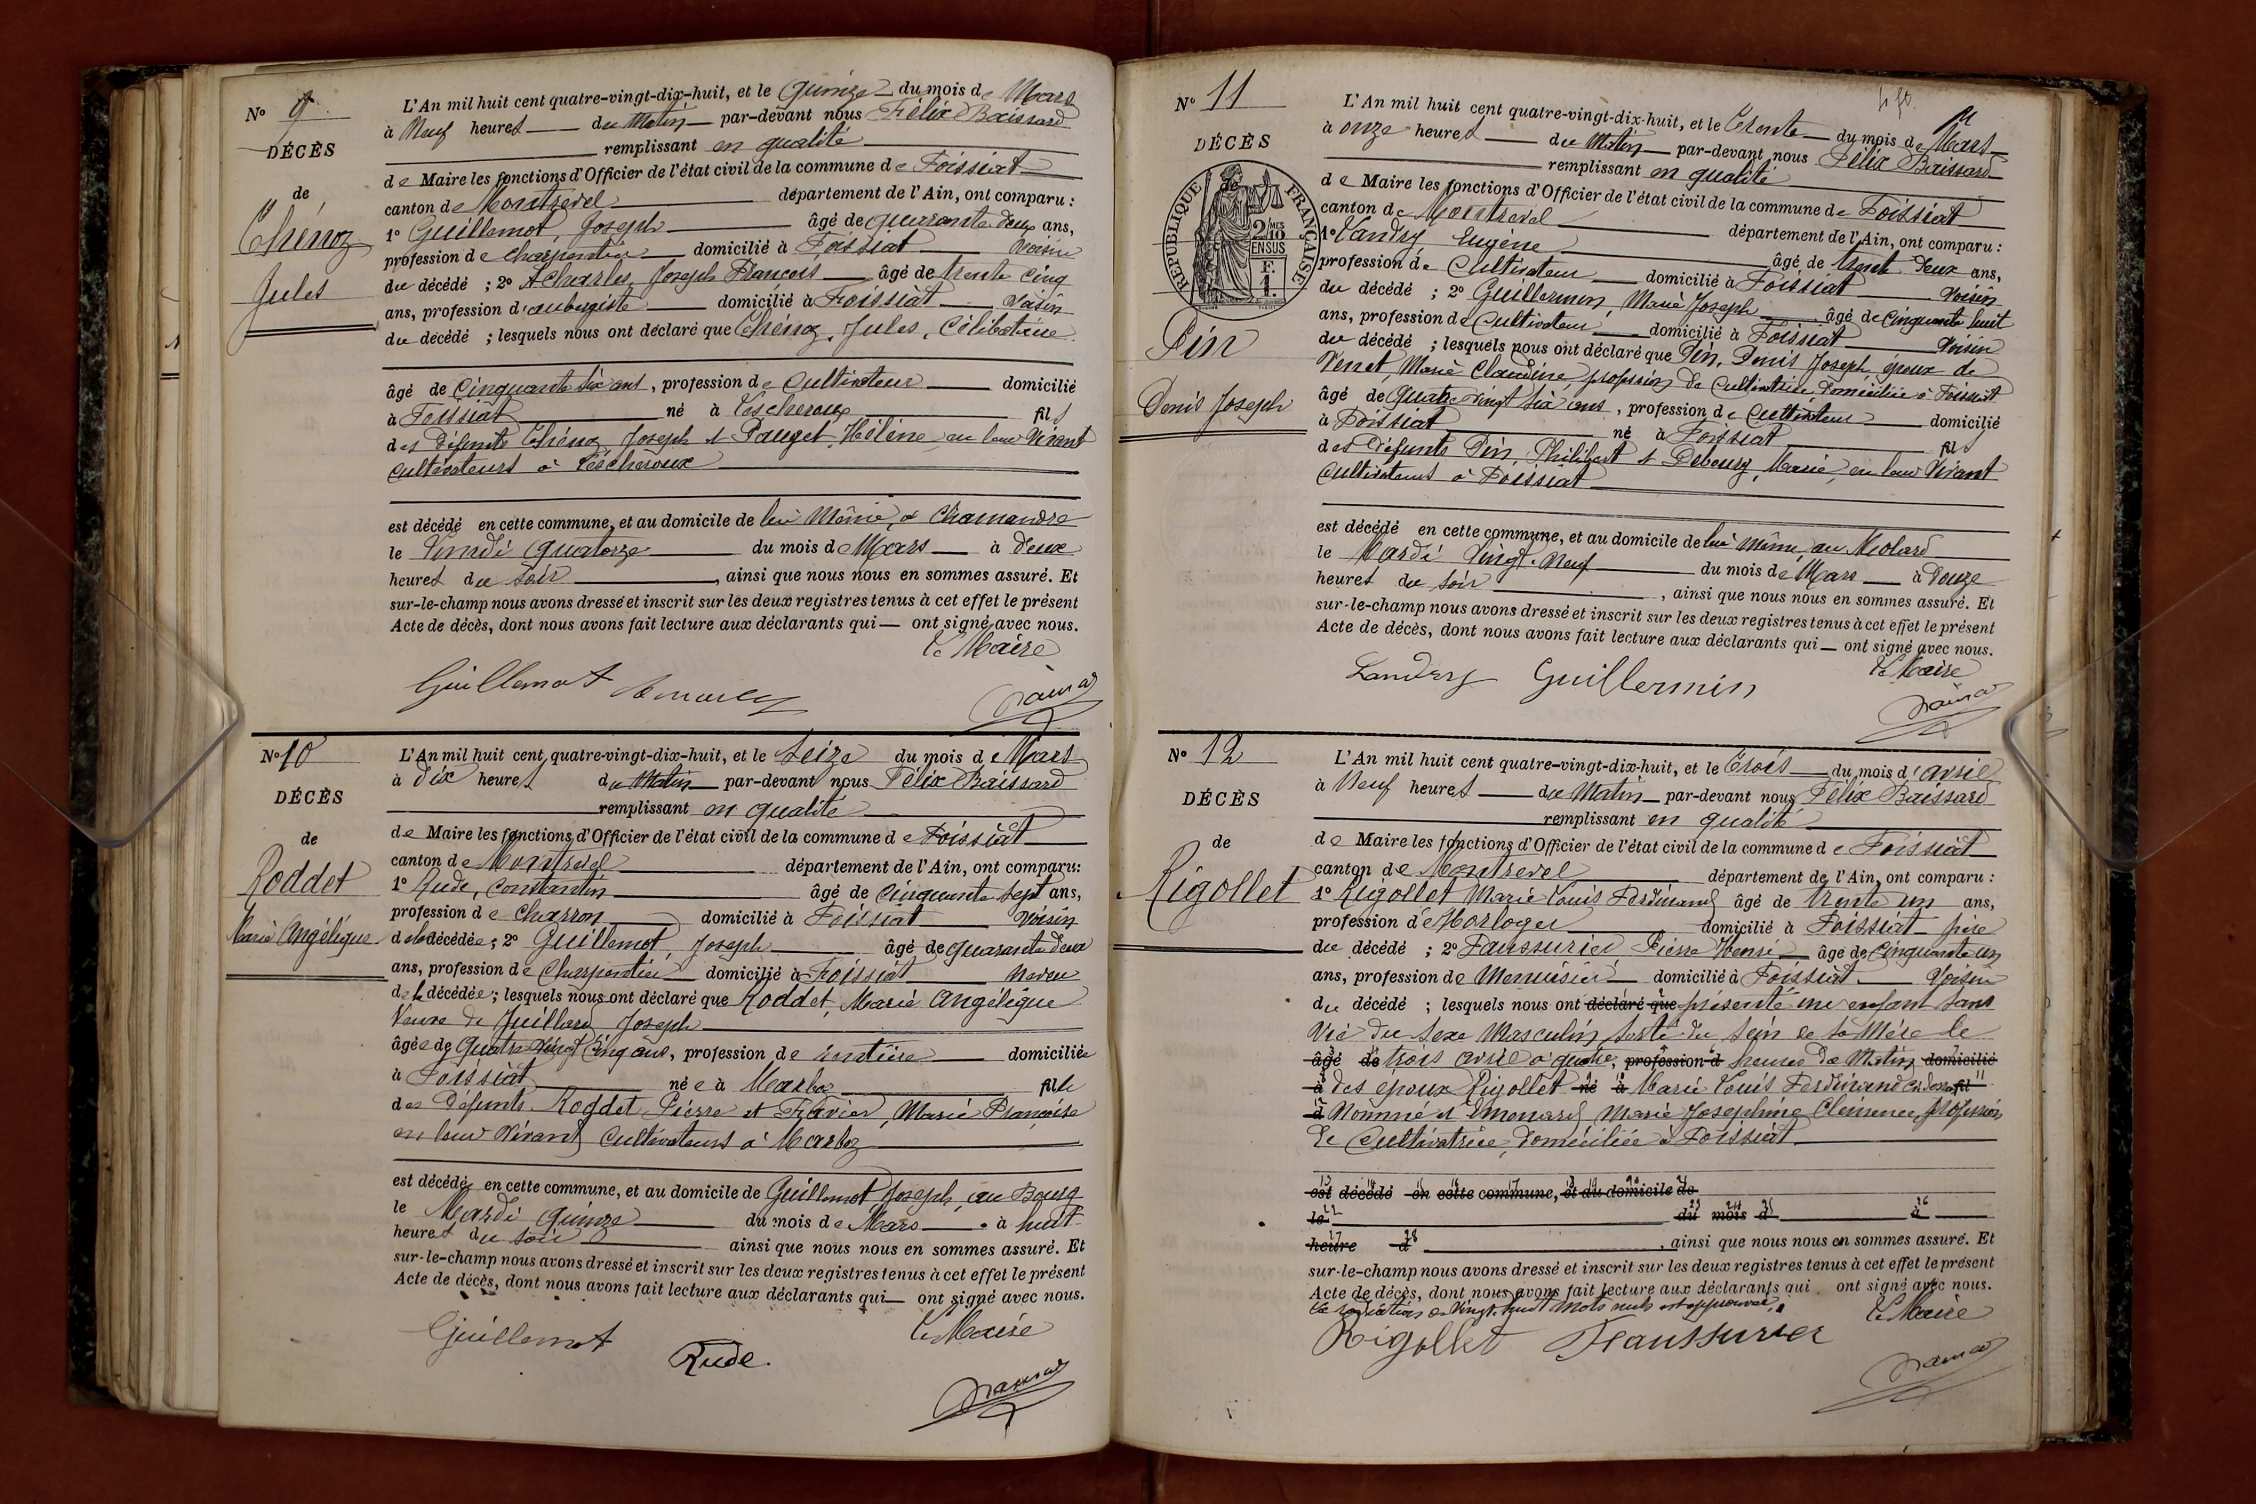 N° 9
DÉCÈS
de
Thénoz
Jules
L'An mil huit cent quatre-vingt-dix-huit, et le Quinze du mois de Mars
à Neuf heures du Matin par-devant nous Félix Baissard
remplissant en qualité
de Maire les fonctions d'Officier de l'état civil de la commune de Foissiat
canton de Montrevel département de l'Ain, ont comparu :
1° Guillemot, Joseph âgé de quarante deux ans,
profession de charpentier domicilié à Foissiat voisin
du décédé ; 2° Joseph François âgé de trente cinq
ans, profession d'aubergiste domicilié à Foissiat voisin
du décédé ; lesquels nous ont déclaré que Thénoz, Jules, Célibataire
âgé de Cinquante six ans, profession de Cultivateur domicilié
à Foissiat né à Lescheroux fils
des Défunts Thénoz Joseph et Pauget Hélène en leur Vivant
cultivateurs à Lescheroux
est décédé en cette commune, et au domicile de lui Même, à Chamandre
le quatorze du mois de Mars à deux
heures du soir, ainsi que nous nous en sommes assuré. Et
sur-le-champ nous avons dressé et inscrit sur les deux registres tenus à cet effet le présent
Acte de décès, dont nous avons fait lecture aux déclarants qui ont signé avec nous.
Le Maire
Guillemot
N° 10
DÉCÈS
de
Roddet
Marie Angélique
L'An mil huit cent quatre-vingt-dix-huit, et le Seize du mois de Mars
à Dix heures du Matin par-devant nous Félix Baissard
remplissant en qualité
de Maire les fonctions d'Officier de l'état civil de la commune de Foissiat
canton de Montrevel département de l'Ain, ont comparu :
1° Rude, Constantin âgé de Cinquante sept ans,
profession de charron domicilié à Foissiat voisin
de la décédée ; 2° Guillemot, Joseph âgé de quarante deux
ans, profession de Charpentier domicilié à Foissiat neveu
de la décédée ; lesquels nous ont déclaré que Roddet, Marie Angélique
Veuve de Juillard Joseph
âgée de Quatre Vingt Cinq ans, profession de rentière domiciliée
à Foissiat née à Marboz fille
des Défunts Roddet Pierre et Marie Françoise
en leur Vivant Cultivateurs à Marboz
est décédée en cette commune, et au domicile de Guillemot Joseph, au Bourg
le Mardi quinze du mois de Mars à huit
heures du soir ainsi que nous nous en sommes assuré. Et
sur-le-champ nous avons dressé et inscrit sur les deux registres tenus à cet effet le présent
Acte de décès, dont nous avons fait lecture aux déclarants qui ont signé avec nous.
Le Maire
Guillemot Rude.
N° 11
DÉCÈS
de
RÉPUBLIQUE FRANÇAISE
2/10MES
EN SUS
F.
1.
Pin
Denis Joseph
L'An mil huit cent quatre-vingt-dix-huit, et le Trente du mois de Mars
à onze heures du Matin par-devant nous Félix Baissard
remplissant en qualité
de Maire les fonctions d'Officier de l'état civil de la commune de Foissiat
canton de Montrevel département de l'Ain, ont comparu :
1° Landry, Eugène âgé de trente Deux ans,
profession de Cultivateur domicilié à Foissiat voisin
du décédé ; 2° Guillermin, Marie Joseph âgé de Cinquante huit
ans, profession de Cultivateur domicilié à Foissiat voisin
du décédé ; lesquels nous ont déclaré que Pin, Denis Joseph, époux de
Venet, Marie Claudine, profession de Cultivatrice domiciliée à Foissiat
âgé de Quatre vingt six ans, profession de Cultivateur domicilié
à Foissiat né à Foissiat fils
des Défunts Pin Philibert et Debourg, Marie, en leur Vivant
Cultivateurs à Foissiat
est décédé en cette commune, et au domicile de lui même, au Molard
le Mardi Vingt-Neuf du mois de Mars à Douze
heures du soir, ainsi que nous nous en sommes assuré. Et
sur-le-champ nous avons dressé et inscrit sur les deux registres tenus à cet effet le présent
Acte de décès, dont nous avons fait lecture aux déclarants qui ont signé avec nous.
Le Maire
Landry Guillermin
N° 12
DÉCÈS
de
Rigollet
L'An mil huit cent quatre-vingt-dix-huit, et le Trois du mois d'avril
à Neuf heures du Matin par-devant nous Félix Baissard
remplissant en qualité
de Maire les fonctions d'Officier de l'état civil de la commune de Foissiat
canton de Montrevel département de l'Ain, ont comparu :
1° Rigollet Marie Louis Ferdinand âgé de trente un ans,
profession d'Horloger domicilié à Foissiat père
du décédé ; 2° Faussurier, Pierre Henri âgé de Cinquante un
ans, profession de Menuisier domicilié à Foissiat Voisin
du décédé ; lesquels nous ont déclaré que présenté un enfant sans
Vie du sexe Masculin sorti du sein de sa Mère le
âgé de trois avril à quatre, profession d heures du Matin domicilié
à des époux Rigollet né à Marie Louis Ferdinand fil
à nommé et Emonard Marie Joséphine Clémence profession
de Cultivatrice, domiciliée à Foissiat
est décédé en cette commune, et au domicile de
le du mois d à
heure d , ainsi que nous nous en sommes assuré. Et
sur-le-champ nous avons dressé et inscrit sur les deux registres tenus à cet effet le présent
Acte de décès, dont nous avons fait lecture aux déclarants qui ont signé avec nous.
La radiation de vingt huit mots nuls est approuvée.
Le Maire
Rigollet Faussurier